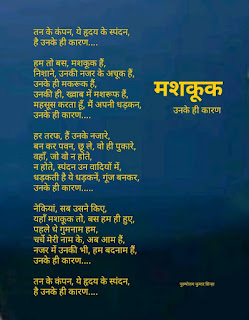 तन के कंपन, ये हृदय के स्पंदन,
है उनके ही कारण....
हम तो बस, मशकूक हैं,
निशाने, उनकी नजर के अचूक हैं,
उनके ही मकरूक हैं,
उनकी ही, ख्वाब में मशरूफ हैं,
महसूस करता हूँ, मैं अपनी धड़कन,
उनके ही कारण....
हर तरफ, हैं उनके नजारे,
बन कर पवन, छू ले, वो ही पुकारे,
वहाँ, जो वो न होते,
न होते, स्पंदन उन वादियों में,
धड़कती है ये धड़कनें, गूंज बनकर,
उनके ही कारण.....
नेकियां, सब उसने किए,
यहाँ मशकूक तो, बस हम ही हुए,
पहले थे गुमनाम हम,
चर्चे मेरी नाम के, अब आम हैं,
नजर में उनकी भी, हम बदनाम हैं,
उनके ही कारण....
तन के कंपन, ये हृदय के स्पंदन,
है उनके ही कारण....
मशकूक
उनके ही कारण
पुरुषोत्तम कुमार सिन्हा